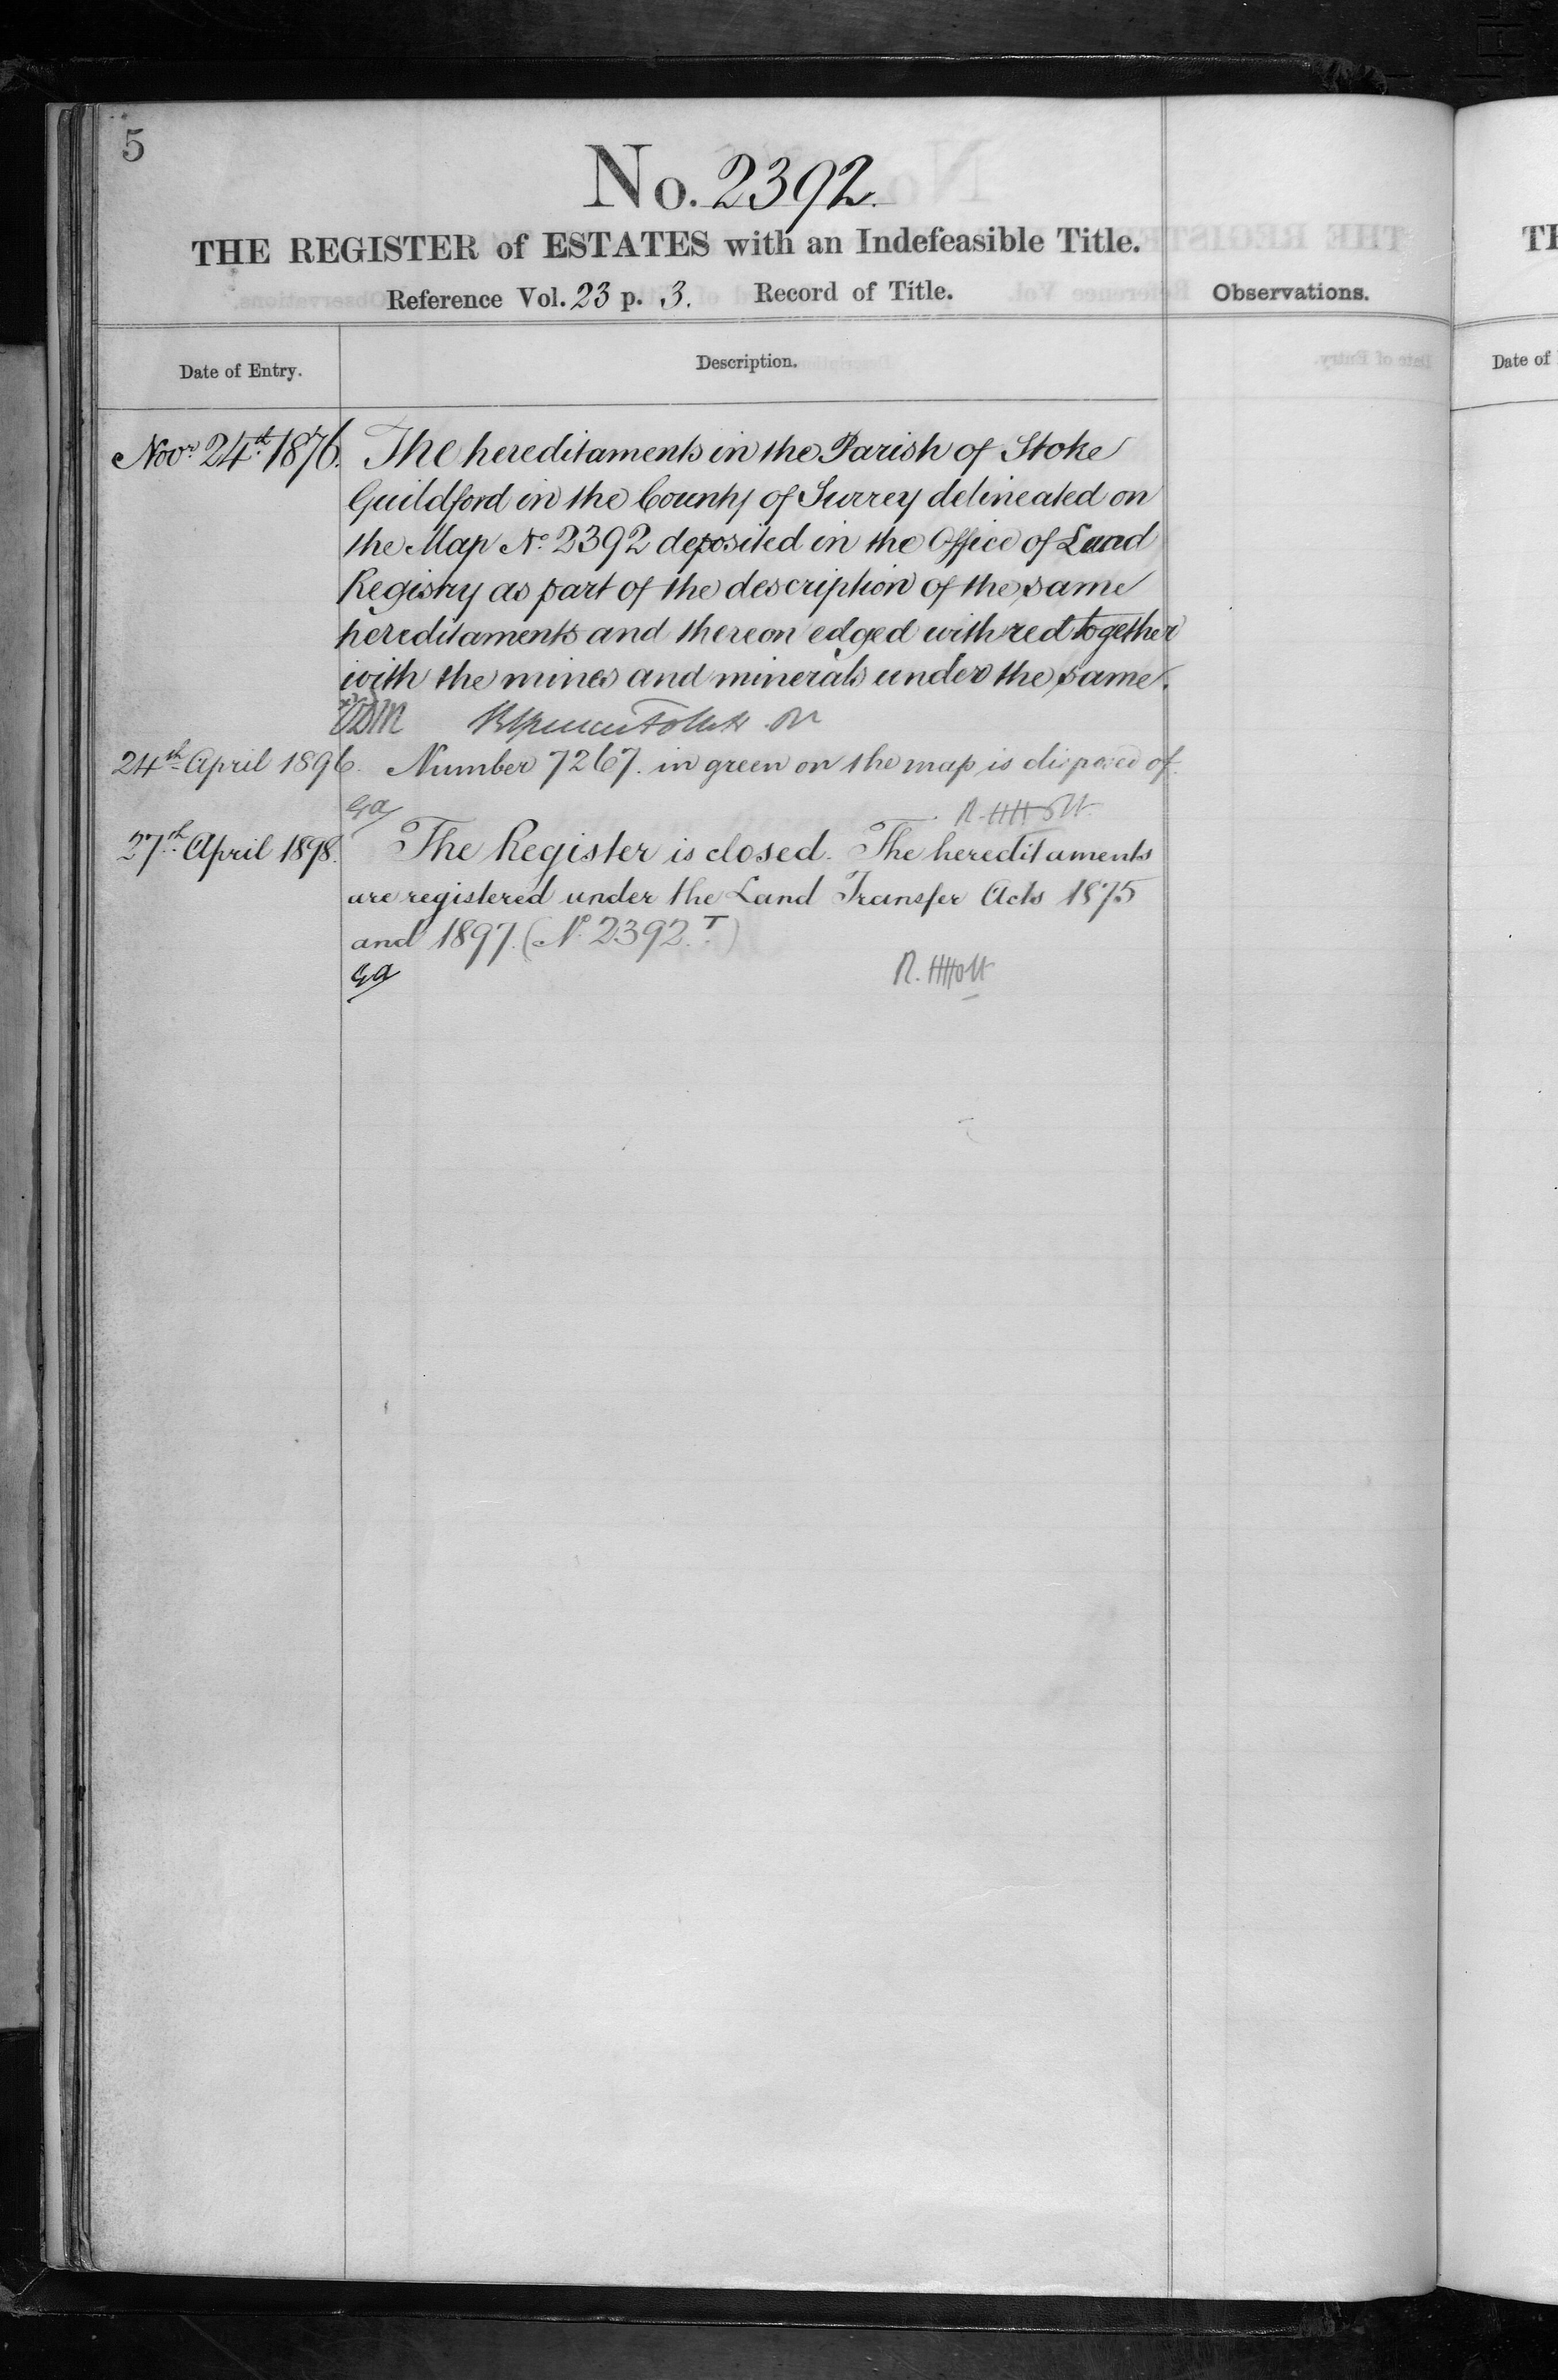 5
No. 2392.
THE REGISTER of ESTATES with an Indefeasible Title.
Reference Vol. 23 p. 3. Record of Title.
Observations.
Date of Entry.
Description.
Novr. 24th. 1876. The hereditaments in the Parish of Stoke
Guildford in the County of Surrey delineated on
the Map No. 2392 deposited in the Office of Land
Registry as part of the description of the same
hereditaments and thereon edged with red together
with the mines and minerals under the same.
24th April 1896. Number 7267. in green on the map is disposed of.
R. H Holt
27th. April 1898. The Register is closed. The hereditaments
are registered under the Land Transfer Acts 1875
and 1897. (No. 2392.T.)
R. H Holt
Date of